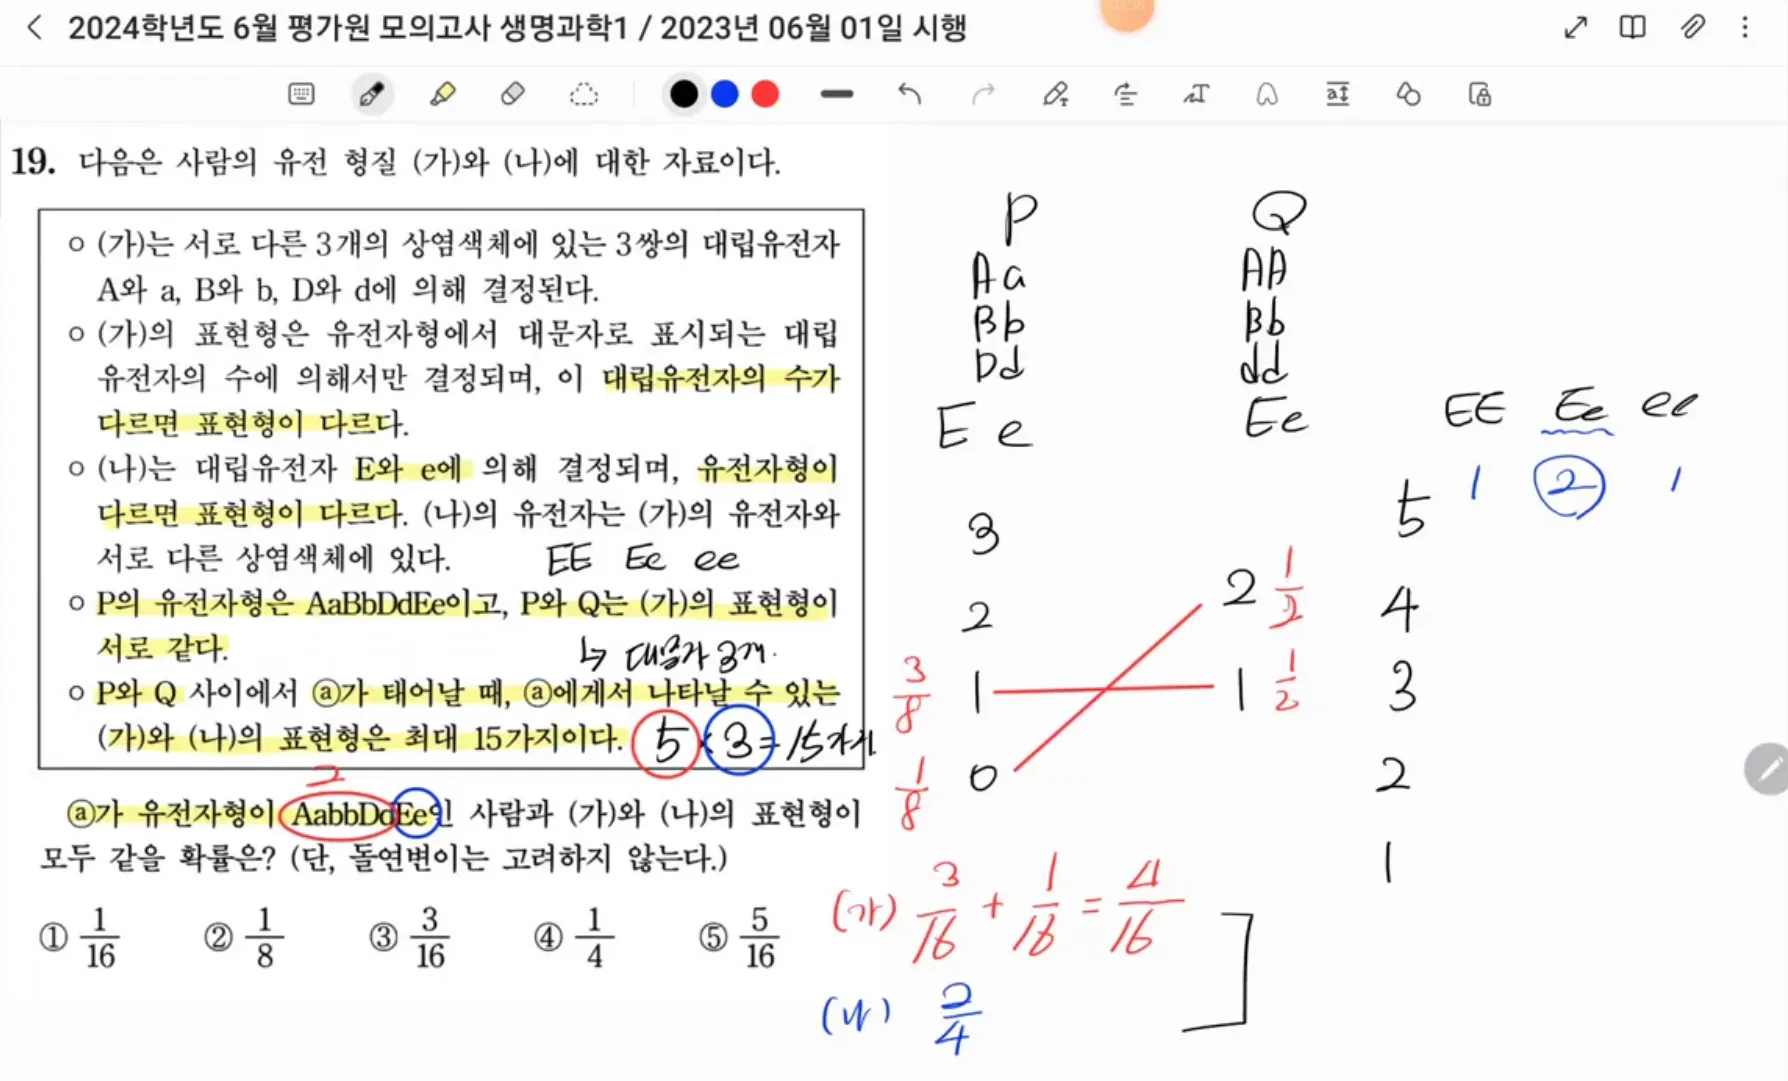 2024학년도 6월 평가원 모의고사 생명과학1 / 2023년 06월 01일 시행
19. 다음은 사람의 유전 형질 (가)와 (나)에 대한 자료이다.
○ (가)는 서로 다른 3개의 상염색체에 있는 3쌍의 대립유전자
A와 a, B와 b, D와 d에 의해 결정된다.
○ (가)의 표현형은 유전자형에서 대문자로 표시되는 대립
유전자의 수에 의해서만 결정되며, 이 대립유전자의 수가
다르면 표현형이 다르다.
○ (나)는 대립유전자 E와 e에 의해 결정되며, 유전자형이
다르면 표현형이 다르다. (나)의 유전자는 (가)의 유전자와
서로 다른 상염색체에 있다.
EE Ee ee
○ P의 유전자형은 AaBbDdEe이고, P와 Q는 (가)의 표현형이
서로 같다.
↳ 대문자 3개.
○ P와 Q 사이에서 ⓐ가 태어날 때, ⓐ에게서 나타날 수 있는
(가)와 (나)의 표현형은 최대 15가지이다.
5 × 3 = 15가지
2
ⓐ가 유전자형이 AabbDdEe인 사람과 (가)와 (나)의 표현형이
모두 같을 확률은? (단, 돌연변이는 고려하지 않는다.)
① 1/16 ② 1/8 ③ 3/16 ④ 1/4 ⑤ 5/16
P Q
Aa AA
Bb Bb
Dd dd
E e Ee
EE Ee ee
1 2 1
3 5
2 2 1/2 4
3/8 1 1 1/2 3
1/8 0 2
1
(가) 3/16 + 1/16 = 4/16
(나) 2/4